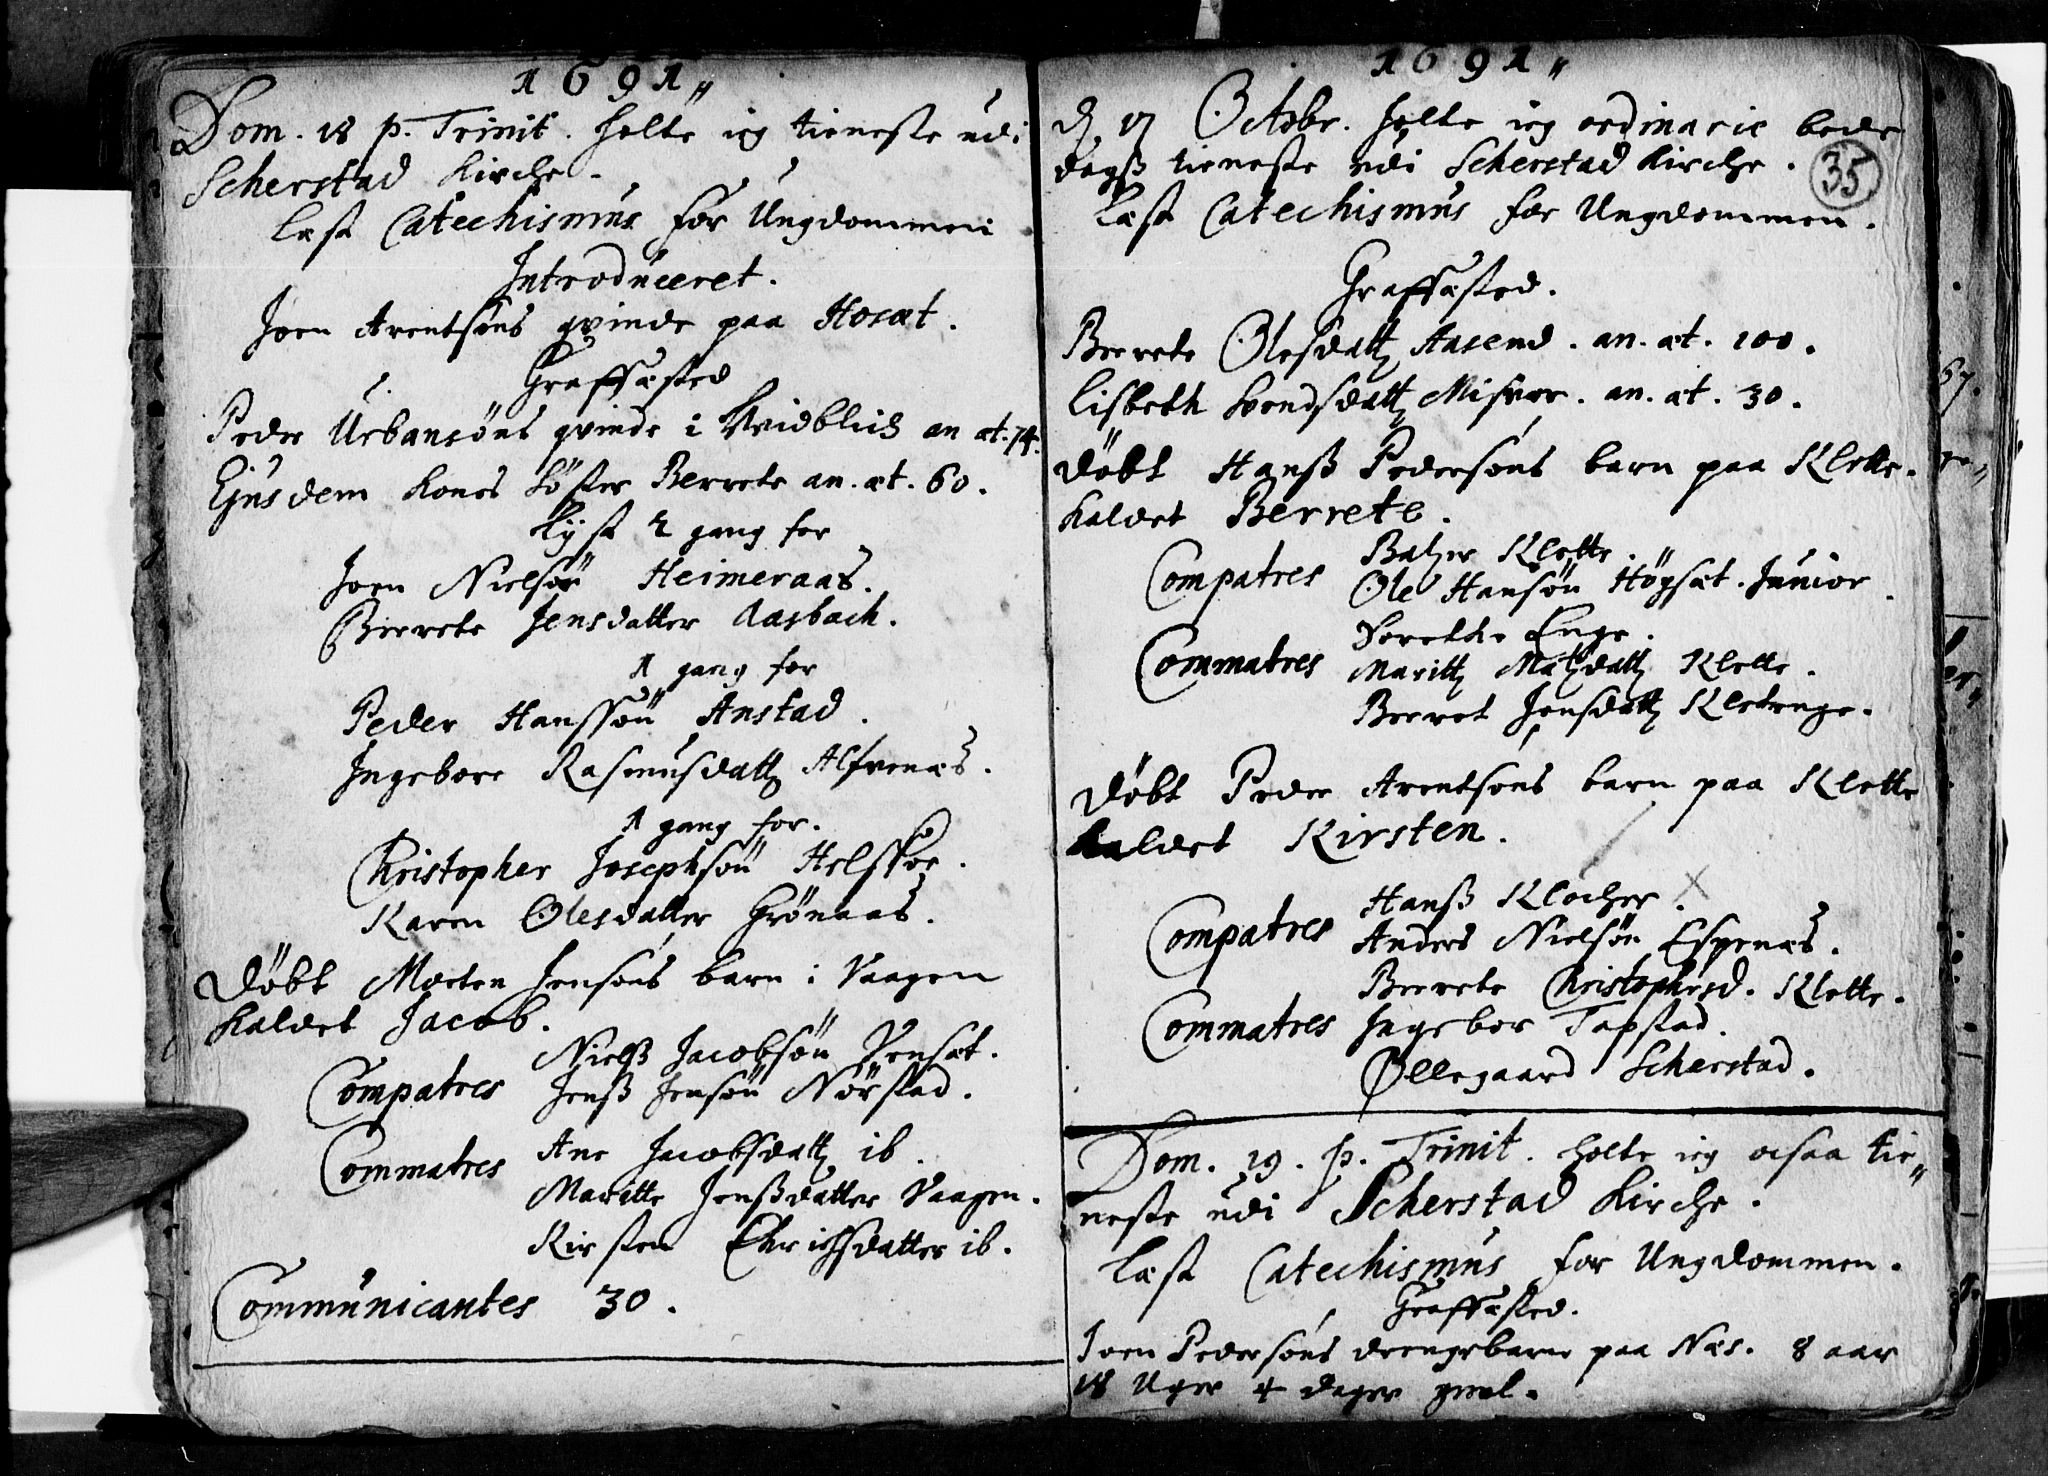 1691
Dom. 18 p. Trinit. holte ieg tieneste udi
Scherstad Kirche.
læst Catechismus for Ungdommen
Introduceret.
Joen Arentsøns qvinde paa Hosæt.
Graffæsted
Peder Urbansøns qvinde i Kvidblich an æt. 74.
Ejusdem Kones Søster Berrete an. æt. 60.
Lyst 2 gang for
Joen Nielsøn Heimeraas.
Berrete Jensdatter Aasbach.
1 gang for
Peder Hanssøn Anstad.
Ingebore Rasmusdatt Alfvenæs.
1 gang for.
Christopher Josephsøn Helskor.
Karen Olesdatter Grønaas.
Døbt Morten Jensøns barn i Vaagen
Kaldet Jacob.
Nielß Jacobsøn Vensæt.
Compatres Jenß Jensøn Nørstad.
Ane Jacobsdatt ib.
Commatres
Maritte Jenßdatter Vaagen.
Kirsten Ehrichsdatter ib.
Communicantes 30.
1691
35
d. 17 Octobr. holte ieg ordinarie bede
dagß tieneste udi Scherstad Kirche.
læst Catechismus for Ungdommen.
Graffæsted.
Berrete Olesdatt Aasend. an. æt. 100.
Lisbeth Svendsdatt Misvær. an. æt. 30.
Døbt Hanß Pedersøns barn paa Klette.
Kaldet Berrete.
Balzer Klette.
Compatres Ole Hansøn Høgsæt. Junior.
Dorethe Enge.
Commatres Maritt Matzdatt Klette.
Berret Jensdatt Kletenge.
Døbt Peder Arentsøns barn paa Klette
Kaldet Kirsten.
Hanß Klocher.
Compatres Anders Nielsøn Espenæs.
Berrete Christophersd. Klette.
Commatres Ingebor Tapstad.
Øllegaard Scherstad.
Dom. 19. p. Trinit. holte ieg ocsaa tie
neste udi Scherstad Kirche.
læst Catechismus for Ungdommen.
Graffæsted.
Joen Pedersøns drengebarn paa Næs. 8 aar
18 Uger 4 dager gmel.